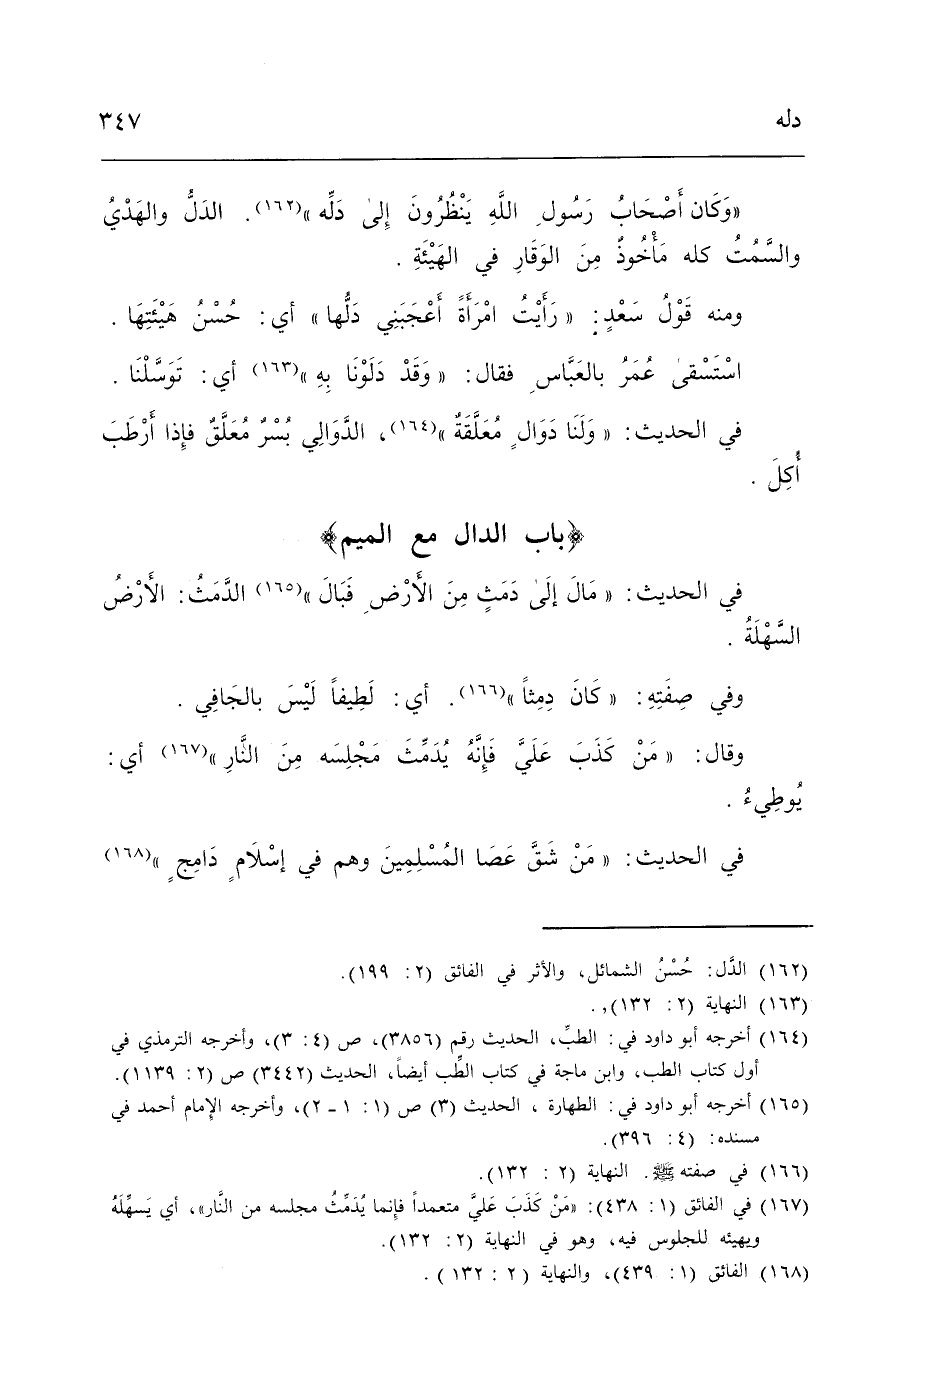 دله
٣٤٧
«وَكَان أَصْحَابُ رَسُولِ اللَّهِ يَنْظُرُونَ إِلىٰ دَلِّه»(١٦٢). الدَلُّ والهَدْيُ
والسَّمْتُ كله مَأْخُوذٌ مِنَ الوَقَارِ في الهَيْئَةِ .
ومنه قَوْلُ سَعْدٍ: « رَأَيْتُ امْرَأَةً أَعْجَبَنِي دَلُّها» أي: حُسْنُ هَيْئَتِهَا .
اسْتَسْقىٰ عُمَرُ بالعَبَّاسِ فقال: « وَقَدْ دَلَوْنَا بِهِ »(١٦٣) أي: تَوَسَّلْنَا .
في الحديث: « وَلَنَا دَوَالٍ مُعَلَّقَةٌ »(١٦٤)، الدَّوَالِي بُسْرٌ مُعَلَّقٌ فإذا أَرْطَبَ
أُكِلَ .
﴿باب الدال مع الميم﴾
في الحديث: « مَالَ إلَىٰ دَمَثٍ مِنَ الأَرْضِ فَبَالَ »(١٦٥) الدَّمَثُ: الأَرْضُ
السَّهْلَةُ .
وفي صِفَتِهِ: « كَانَ دِمِثاً »(١٦٦). أي: لَطِيفاً لَيْسَ بالجَافِي .
وقال: « مَنْ كَذَبَ عَلَيَّ فَإِنَّهُ يُدَمِّثَ مَجْلِسَه مِنَ النَّارِ »(١٦٧) أي:
يُوطِيءُ .
في الحديث: « مَنْ شَقَّ عَصَا المُسْلِمِينَ وهم في إسْلَامٍ دَامِجٍ »(١٦٨)
(١٦٢) الدَّل: حُسْنُ الشمائل، والأثر في الفائق (٢: ١٩٩).
(١٦٣) النهاية (٢: ١٣٢),.
(١٦٤) أخرجه أبو داود في: الطبِّ، الحديث رقم (٣٨٥٦)، ص (٤: ٣)، وأخرجه الترمذي في
أول كتاب الطب، وابن ماجة في كتاب الطِّب أيضاً، الحديث (٣٤٤٢) ص (٢: ١١٣٩).
(١٦٥) أخرجه أبو داود في: الطهارة ، الحديث (٣) ص (١: ١ - ٢)، وأخرجه الإمام أحمد في
مسنده: (٤: ٣٩٦).
(١٦٦) في صفته ﷺ. النهاية (٢ : ١٣٢).
(١٦٧) في الفائق (١: ٤٣٨): «مَنْ كَذَبَ عَليَّ متعمداً فإنما يُدَمِّثُ مجلسه من النَّار»، أي يَسهِّلَهُ
ويهيئه للجلوس فيه، وهو في النهاية (٢: ١٣٢).
(١٦٨) الفائق (١: ٤٣٩)، والنهاية ( ٢ : ١٣٢ ) .